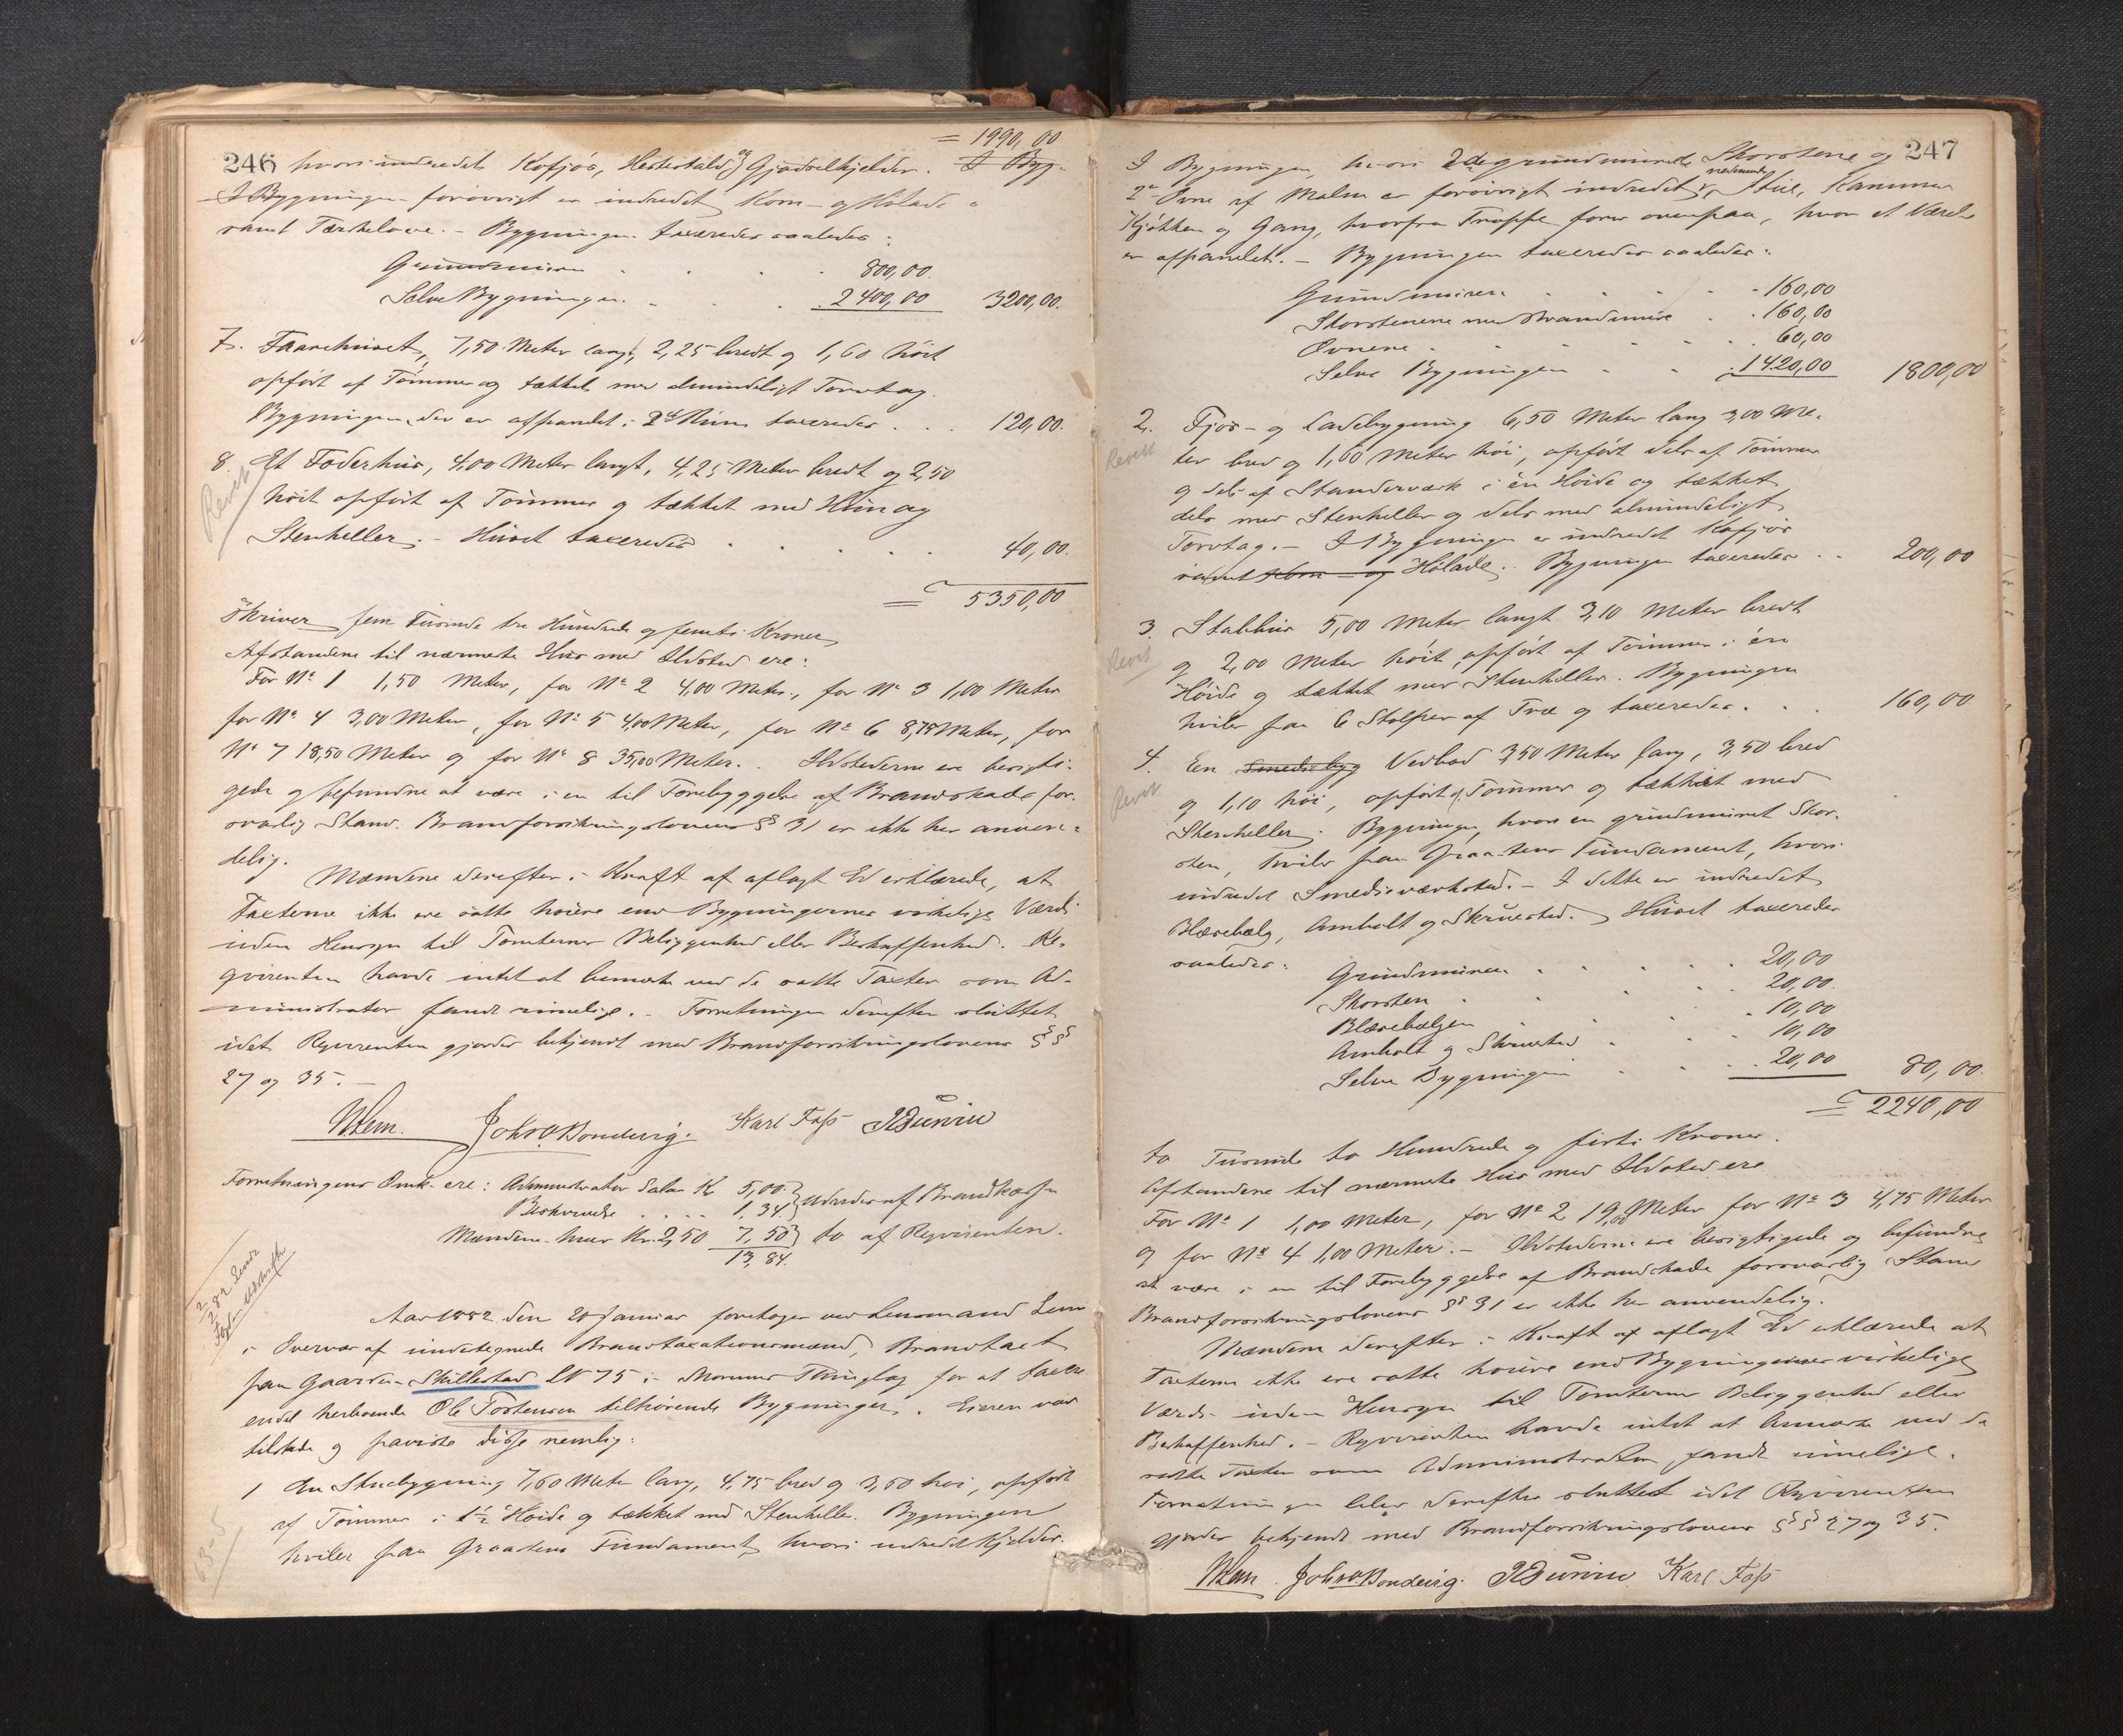 = 1990,00
246 hvori indredet Kofjøs, Hestestald og Gjødselkjelder. I Byg-
I Bygningen forøvrigt er indredet Korn- og Hølade
samt Tærskelove. - Bygningen taxeredes saaledes:
Grundmuren . . . . 800,00.
Selve Bygningen . . . 2400,00 3200,00.
7. Faarehuset, 7,50 Meter langt, 2,25 bredt og 1,60 høit
opført af Tømmer og tækket med almindeligt Torvtag.
Bygningen, der er afpanelet i 2de Rum taxeredes . . . 120,00.
8. Et Foderhus, 4,00 Meter langt, 4,25 Meter bredt og 2,50
Revet
høit opført af Tømmer og tækket med Hun og
Stenheller. - Huset taxeredes . . . . . 40,00.
= 5350,00
Skriver fem Tusinde tre Hundrede og femti Kroner
Afstandene til nærmeste Hus med Ildsted ere:
For No 1 1,50 Meter, for No 2 4,00 Meter, for No 3 1,00 Meter
for No 4 3,00 Meter, for No 5 4,00 Meter, for No 6 8,75 Meter, for
No 7 18,50 Meter og for No 8 35,00 Meter. Ildstederne ere besigti-
gede og befundne at være i en til Forebyggelse af Brandskade for-
svarlig Stand. Brandforsikringslovens §§ 31 er ikke her anven-
delig.
Mændene derefter i Kraft af aflagt Ed erklærede, at
Taxterne ikke ere satte høiere end Bygningernes virkelige Værdi
uden Hensyn til Tomternes Beliggenhed eller Beskaffenhed. Re-
qvirenten havde intet at bemærke ved de satte Taxter som Ad-
ministrator fandt rimelige. - Forretningen derefter sluttet
idet Reqvirenten gjordes bekjendt med Brandforsikringslovens §§
27 og 35. -
Lem. Johs. O. Bondevig. Karl Foss
Forretningens Omk. ere: Administrator Salær Kr 5,00 } udredes af Brandkassen
Beskrivelse . . . . 1,34.
Mændene hver Kr. 2,50 7,50 } do af Reqvirenten.
13,84.
2/3 82 Sendt Foged Udskrift
Aar 1882 den 20 Januar foretoges ved Lensmand Lem
i Overvær af undertegnede Brandtaxationsmænd, Brandtaxt
paa Gaarden Skillestad LN 75 i Thinglag for at taxere
endel herboende Ole Torstensen tilhørende Bygninger. Eieren var
tilstede og paaviste disse nemlig:
1 En Stuebygning 7,60 Meter lang, 4,75 bred og 3,50 høi, opført
af Tømmer i 1½ Høide og tækket med Stenheller. Bygningen
hviler paa Graastens Fundament, hvori indredet Kjelder.
247
I Bygningen, hvori 2de grundmurede Skorstene og
2de Ovne af Malm er forøvrigt indredet nedenunder Stue, Kammer
Kjøkken og Gang, hvorfra Trappe fører ovenpaa, hvor et Værelse
er afpanelet. - Bygningen taxeredes saaledes:
Grundmuren . . . . . 160,00
Skorstenene med Brandmure . . 160,00
Ovnene . . . . . . 60,00
Selve Bygningen . . . 1420,00 1800,00
2. Fjøs- og Ladebygning 6,50 Meter lang 3,00 Me-
Revet
ter bred og 1,60 Meter høi, opført dels af Tømmer
og dels af Standerværk i én Høide og tækket
dels med Stenheller og dels med almindeligt
Torvtag. - I Bygningen er indredet Kofjøs
samt Korn- og Hølade. Bygningen taxeredes . . 200,00
3. Stabbur 5,00 Meter langt 3,10 Meter bredt
Revet
og 2,00 Meter høit, opført af Tømmer i én
Høide og tækket med Stenheller. Bygningen
hviler paa 6 Stolper af Træ og taxeredes . . . 160,00
4. En Smediebyg Vedbod 3,50 Meter lang, 3,50 bred
Revet
og 1,10 høi, opført af Tømmer og tækket med
Stenheller. Bygningen, hvori en grundmuret Skor-
sten, hviler paa Graastens Fundament, hvori
indredet Smedieværksted. - I dette er indredet
Blæsebælg, Ambolt og Skruested. Huset taxeredes
saaledes:
Grundmuren . . . . . 20,00
Skorsten . . . . 20,00.
Blæsebælgen . . . 10,00
Ambolt og Skruested . . . 10,00
Selve Bygningen . . . 20,00 80,00.
= 2240,00
to Tusinde to Hundrede og firti Kroner.
Afstandene til nærmeste Hus med Ildsted ere
For No 1 1,00 Meter, for No 2 19,00 Meter for No 3 4,75 Meter
og for No 4 1,00 Meter. - Ildstederne ere besigtigede og befundne
at være i en til Forebyggelse af Brandskade forsvarlig Stand
Brandforsikringslovens §§ 31 er ikke her anvendelig.
Mændene derefter i Kraft af aflagt Ed erklærede at
Taxterne ikke ere satte høiere end Bygningernes virkelige
Værdi uden Hensyn til Tomternes Beliggenhed eller
Beskaffenhed. - Reqvirenten havde intet at bemærke ved de
satte Taxter som Administrator fandt rimelige.
Forretningen blev derefter sluttet idet Reqvirenten
gjordes bekjendt med Brandforsikringslovens §§ 27 og 35.
Lem. Johs. O. Bondevig. Karl Foss